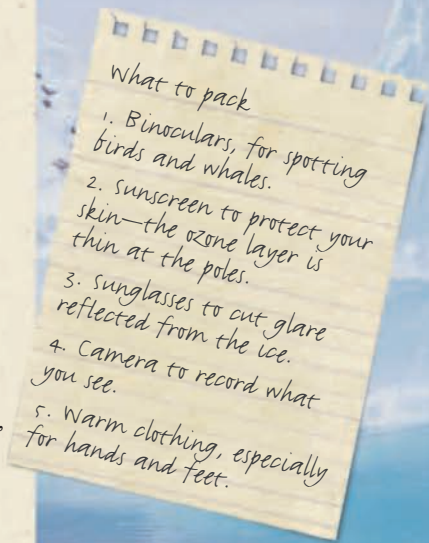 What to pack
1. Binoculars, for spotting
birds and whales.
2. Sunscreen to protect your
skin—the ozone layer is
thin at the poles.
3. Sunglasses to cut glare
reflected from the ice.
4. Camera to record what
you see.
5. Warm clothing, especially
for hands and feet.